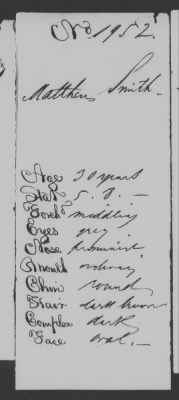 No. 1952.
Matthew Smith.
Age 20 years
Stat 5. 8. —
Foreh middling
Eyes grey.
Nose prominent.
Mouth ordinary
Chin round
Hair dark brown
Complex dark
Face oval. —